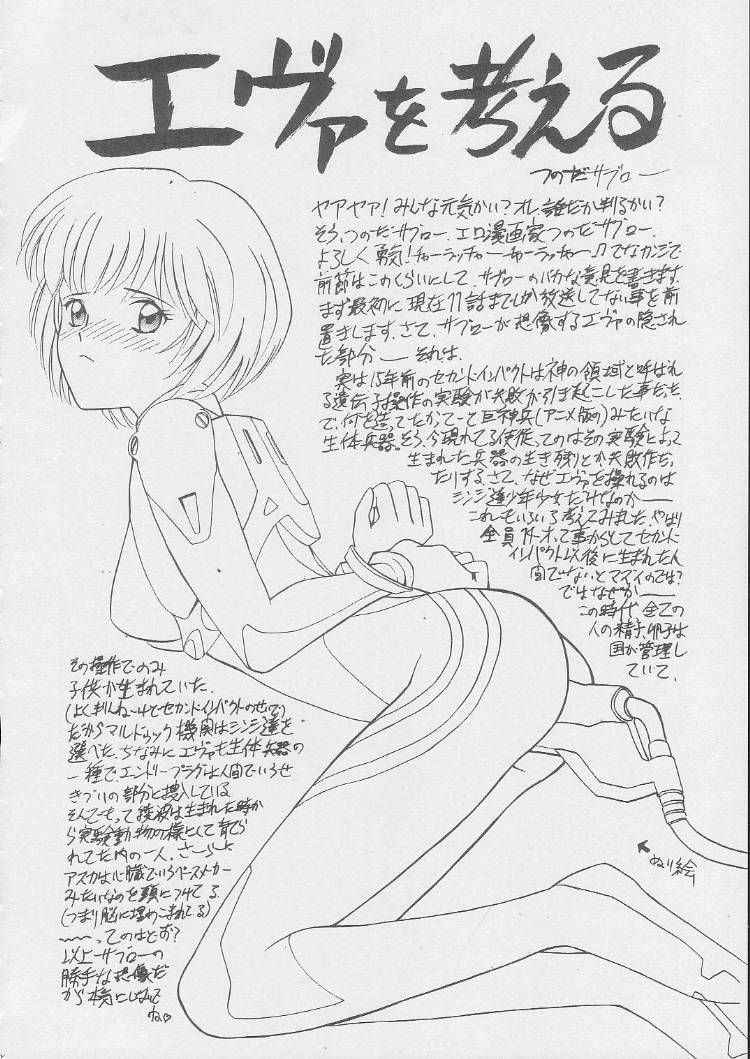 エヴァを考える
つのだサブロー
ヤアヤア!みんな元気かい?オレ誰だか判るかい?
そう、つのだサブロー。エロ漫画家つのだサブロー。
よろしく勇気!チャーラッチャーチャーラッチャー♪てなカンジで
前節はこのくらいにして、サブローのバカな意見を書きます。
まず最初に現在11話までしか放送してない事を前
置きします。さて、サブローが想像するエヴァの隠され
た部分――それは、
実は15年前のセカンドインパクトは神の領域と呼ばれ
る遺伝子操作の実験が失敗が引き起こした事だった
で、何を造ってたかってーと巨神兵(アニメ版の)みたいな
生体兵器。そう、今現れてる使徒ってのはその実験によって
生まれた兵器の生き残りとか失敗作だっ
たりする。さて、なぜエヴァを操れるのは
シンジ達少年少女だけなのか――
これもいろいろ考えてみました。やはり
全員14才って事からしてセカンド
インパクト以後に生まれた人
間でないとマズイのでは?
ではなぜか――
この時代、全ての
人の精子、卵子は
国が管理し
ていて、
その操作でのみ
子供が生まれていた。
(よく判んねーけどセカンドインパクトのせいで)
だからマルドゥック機関はシンジ達を
選べた。ちなみにエヴァも生体兵器の
一種で、エントリープラグは人間でいうせ
きづいの部分と挿入している
そんでもって綾波は生まれた時か
ら実験動物の様にして育てら
れてた内の一人。さーらに
アスカは心臓でいうペースメーカー
みたいなのを頭につけてる。
(つまり脳に埋めこまれてる)
～～ってのはどお?
以上サブローの
勝手な想像だ
から本気にしないで
ね♡
ぬり絵